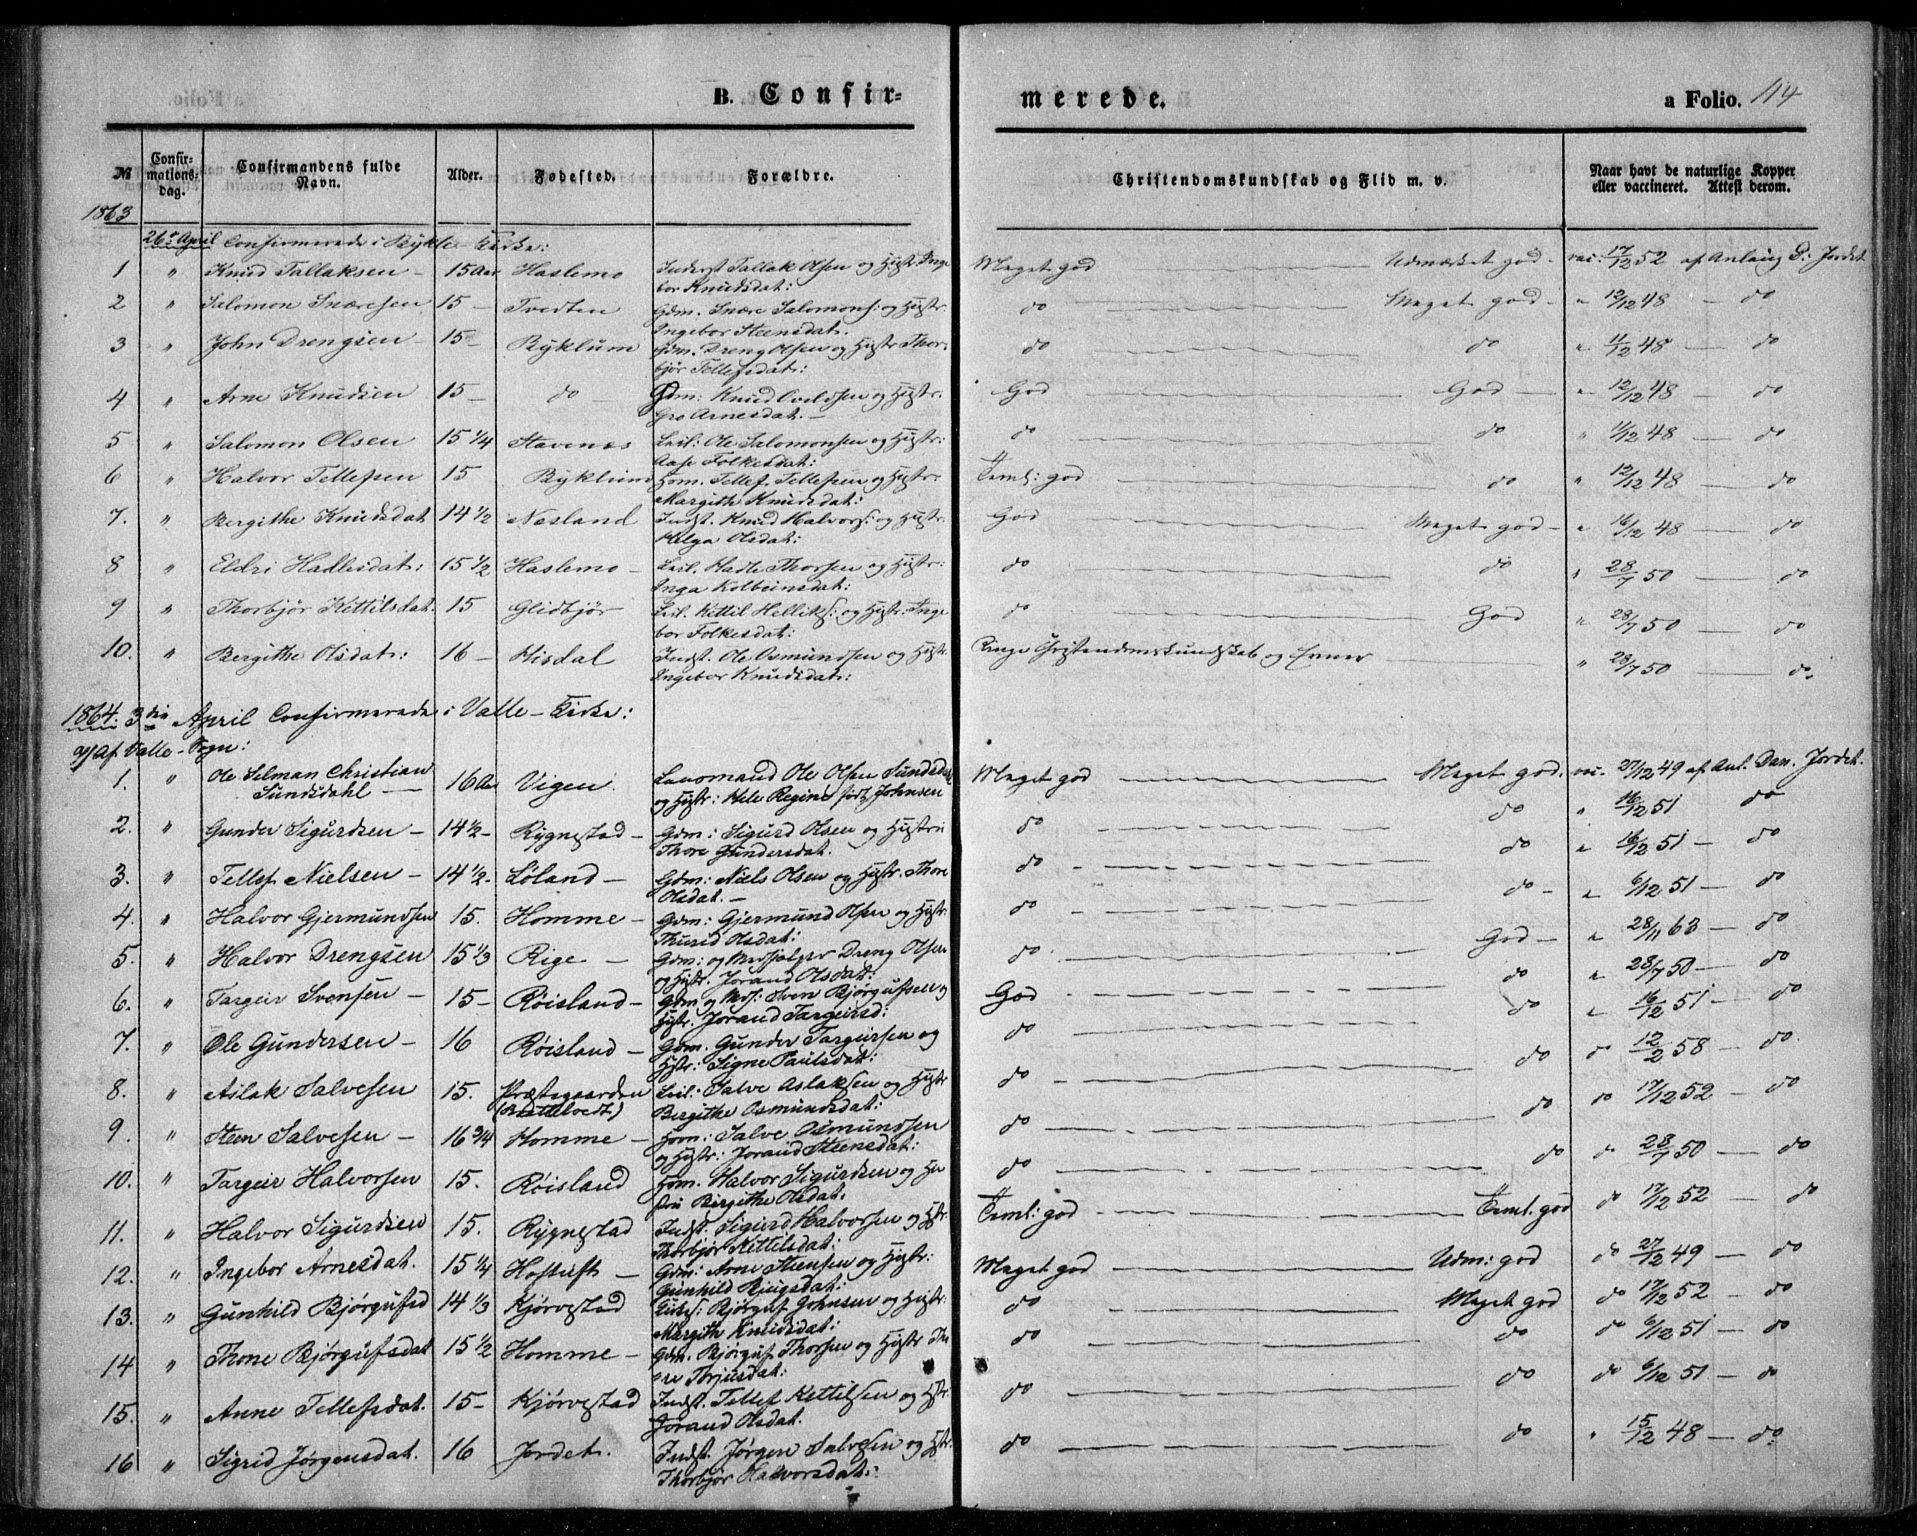 B. Confir= merede. a Folio. 114
№ Confirmationsdag. Confirmandens fulde Navn. Alder. Fødested. Forældre. Christendomskundskab og Flid m. v. Naar havt de naturlige Kopper eller vaccineret. Attest derom.
1863
26de April Confirmerede i Bykle Kirke:
1 " Knud Tallaksen - 15 Aar Haslemo Inderst Tallak Olsen og Hustr. Ingebor Knudsdat: Meget god Udmærket god vac. 17/12 52 af Anlaug D: Jordet
2 " Salomon Snaresen 15 - Tvedten Gdm. Snare Salomons: og Hustr. Ingebor Steensdat. do Meget god " 12/12 48 - do
3 " John Drengsen 15 - Byklum Gdm. Dreng Olsen og Hustr Thorbjør Tellefsdat: do do " 11/12 48 - do
4 " Arne Knudsen 15 - do Gdm: Knud Oveldsen og Hustr. Gro Arnesdat. - God God " 12/12 48 - do
5 " Salomon Olsen 15 1/4 Stavenæs Leil: Ole Salomonsen og Hustr: Aase Folkesdat: do do " 11/12 48 - do
6 " Halvor Tellefsen 15 Byklum Hom. Tellef Tellefsen og Hustr Margithe Knudsdat: Teml: god do " 12/12 48 - do
7. " Bergithe Knudsdat 14 1/2 Nesland Indst. Knud Halvors: og Hustr. Helga Olsdat: God Meget god " 16/12 48 - do
8 " Eldri Hadlesdat: 15 1/2 Haslemo - Leil. Hadle Thorsen og Hustr: Inga Kolbeinsdat: do do " 28/7 50 - do
9 " Thorbjør Kittilsdat. 15 Glidbjør Leil. Kittil Helliks: og Hustr: Ingebor Folkesdat: do God " 28/7 50 - do
10. " Bergithe Olsdat: 16 - Hisdal Indst. Ole Osmundsen og Hustr. Ingebor Knudsdat: Ringe Christendomskundskab og Evner " 28/7 50 do
1864. 3die April Confirmerede i Valle - Kirke:
af Valle - Sogn:
1. " Ole Selman Christian Sundsdahl - 16 Aar Vigen Lensmand Ole Olsen Sundsdal og Hustr: Hele Regine født Johnsen Meget god Meget god vac. 27/12 49 af Ant. Dan. Jordet.
2. " Gunder Sigurdsen - 14 1/2 - Rygnestad - Gdm: Sigurd Olsen og Hustr: Thore Gundersdat. do do " 16/12 51 do
3. " Tellef Nielsen - 14 1/2 - Løland - Gdm: Niels Olsen og Hustr. Thore Olsdat. - do do " 16/12 51 - do
4. " Halvor Gjermundsen 15. Homme - Gdm: Gjermund Olsen og Hustr Thurid Olsdat: do do - " 6/12 51 - do
5. " Halvor Drengsen 15 1/3 Rige - Gdm: og Medhjelper Dreng Olsen og Hustr. Jorand Olsdat: do God - " 28/11 63 - do
6. " Targeir Svensen - 15 - Røisland - Gdm og Mds: Sven Bjørgufsen og Hustr. Jorand Targeirsd: God do " 28/7 50 - do
7. " Ole Gundersen - 16 Røisland - Gdm. Gunder Targeirsen og Hstr: Signe Paulsdat: do do " 16/12 51 - do
8. " Aslak Salvesen 15. Præstegaarden Leil: Salve Aslaksen og Hustr Bergithe Osmundsdat: do do do 12/2 58 - do.
9. " Steen Salvesen - 16 3/4 Homme - Hom: Salve Osmundsen og Hustr: Jorand Steensdat: do do do 17/12 52 - do
10. " Targeir Halvorsen 15. Røisland Hom. Halvor Sigurdsen og Hustru Bergithe Olsdat: do do do 28/7 50 - do
11. " Halvor Sigurdsen 15. Rygnestad Indst. Sigurd Halvorsen og Hstr: Thorbjør Kittilsdat: Teml: god Teml. god do 17/12 52 - do
12. " Ingebor Arnesdat. 15 1/4 Hoftuft - Gdm: Arne Steensen og Hustr: Gunhild Bjugsdat: Meget god Udm: god do 27/12 49 - do
13. " Gunhild Bjørgufsd 14 1/3 Kjørvestad Bjørguf Johnsen og Hustr: Margith Knudsdat: do Meget god do 17/12 52 - do
14 " Thone Bjørgufsdat 15 1/2 Homme - Gdm. Bjørguf Thorsen og Hustr Thore Torjusdat: do do do 6/12 51 - do
15. " Anne Tellefsdat. 15 - Kjørvestad Indst. Tellef Kittilsen og Hstr: Jorand Olsdat. do do do 6/12 51 - do
16 " Sigrid Jørgensdat. 16 Jordet. Indst. Jørgen Salvesen og Hstr: Thorbjør Halvorsdat: do do " 15/12 48 - do: